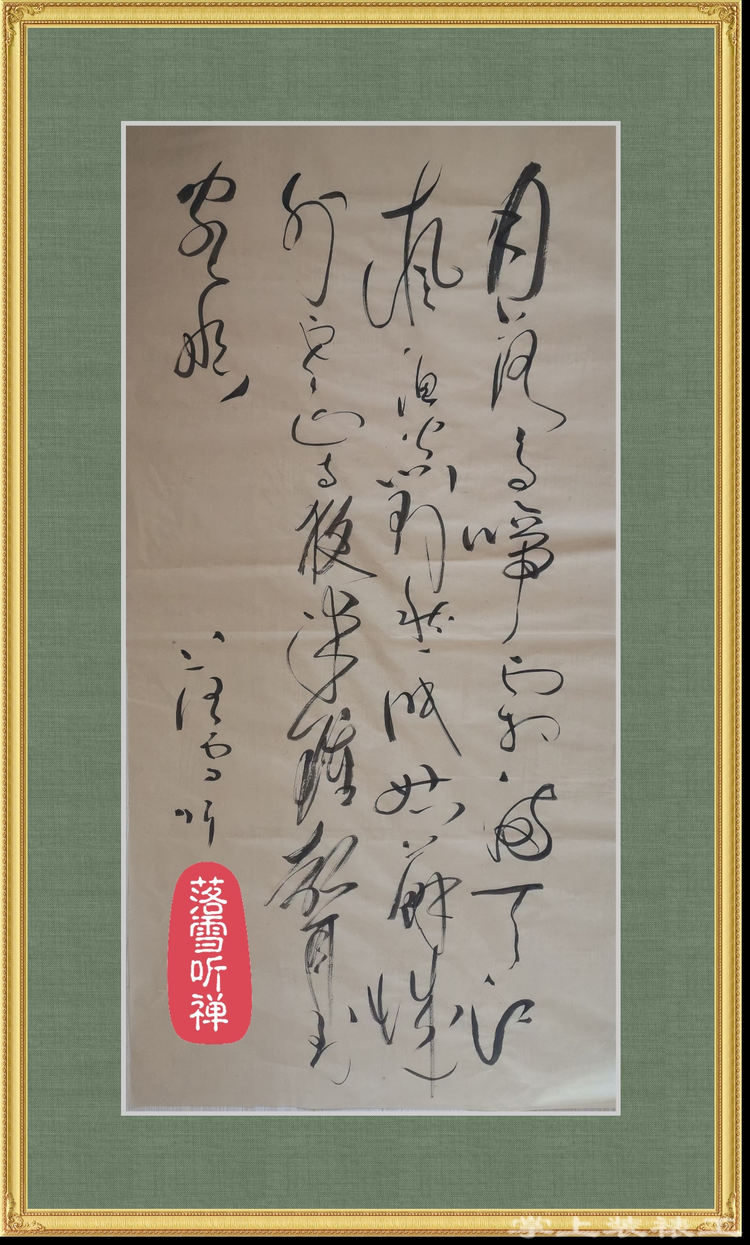 月落乌啼霜满天江
枫渔火对愁眠姑蘇城
外寒山寺夜半鐘聲到
客船
落雪听
落雪听禅
掌上装裱